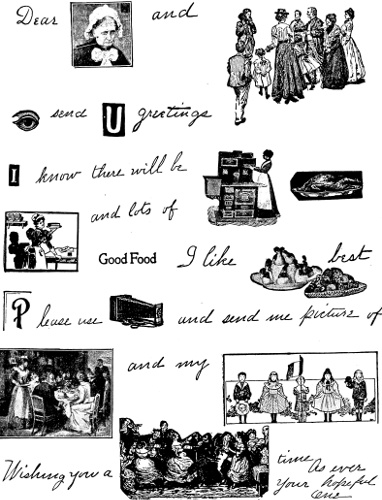 Dear and
send U greetings
I know there will be
and lots of
Good Food I like best
Please use and send me picture of
and my
Wishing you a time
As ever
your hopeful
one